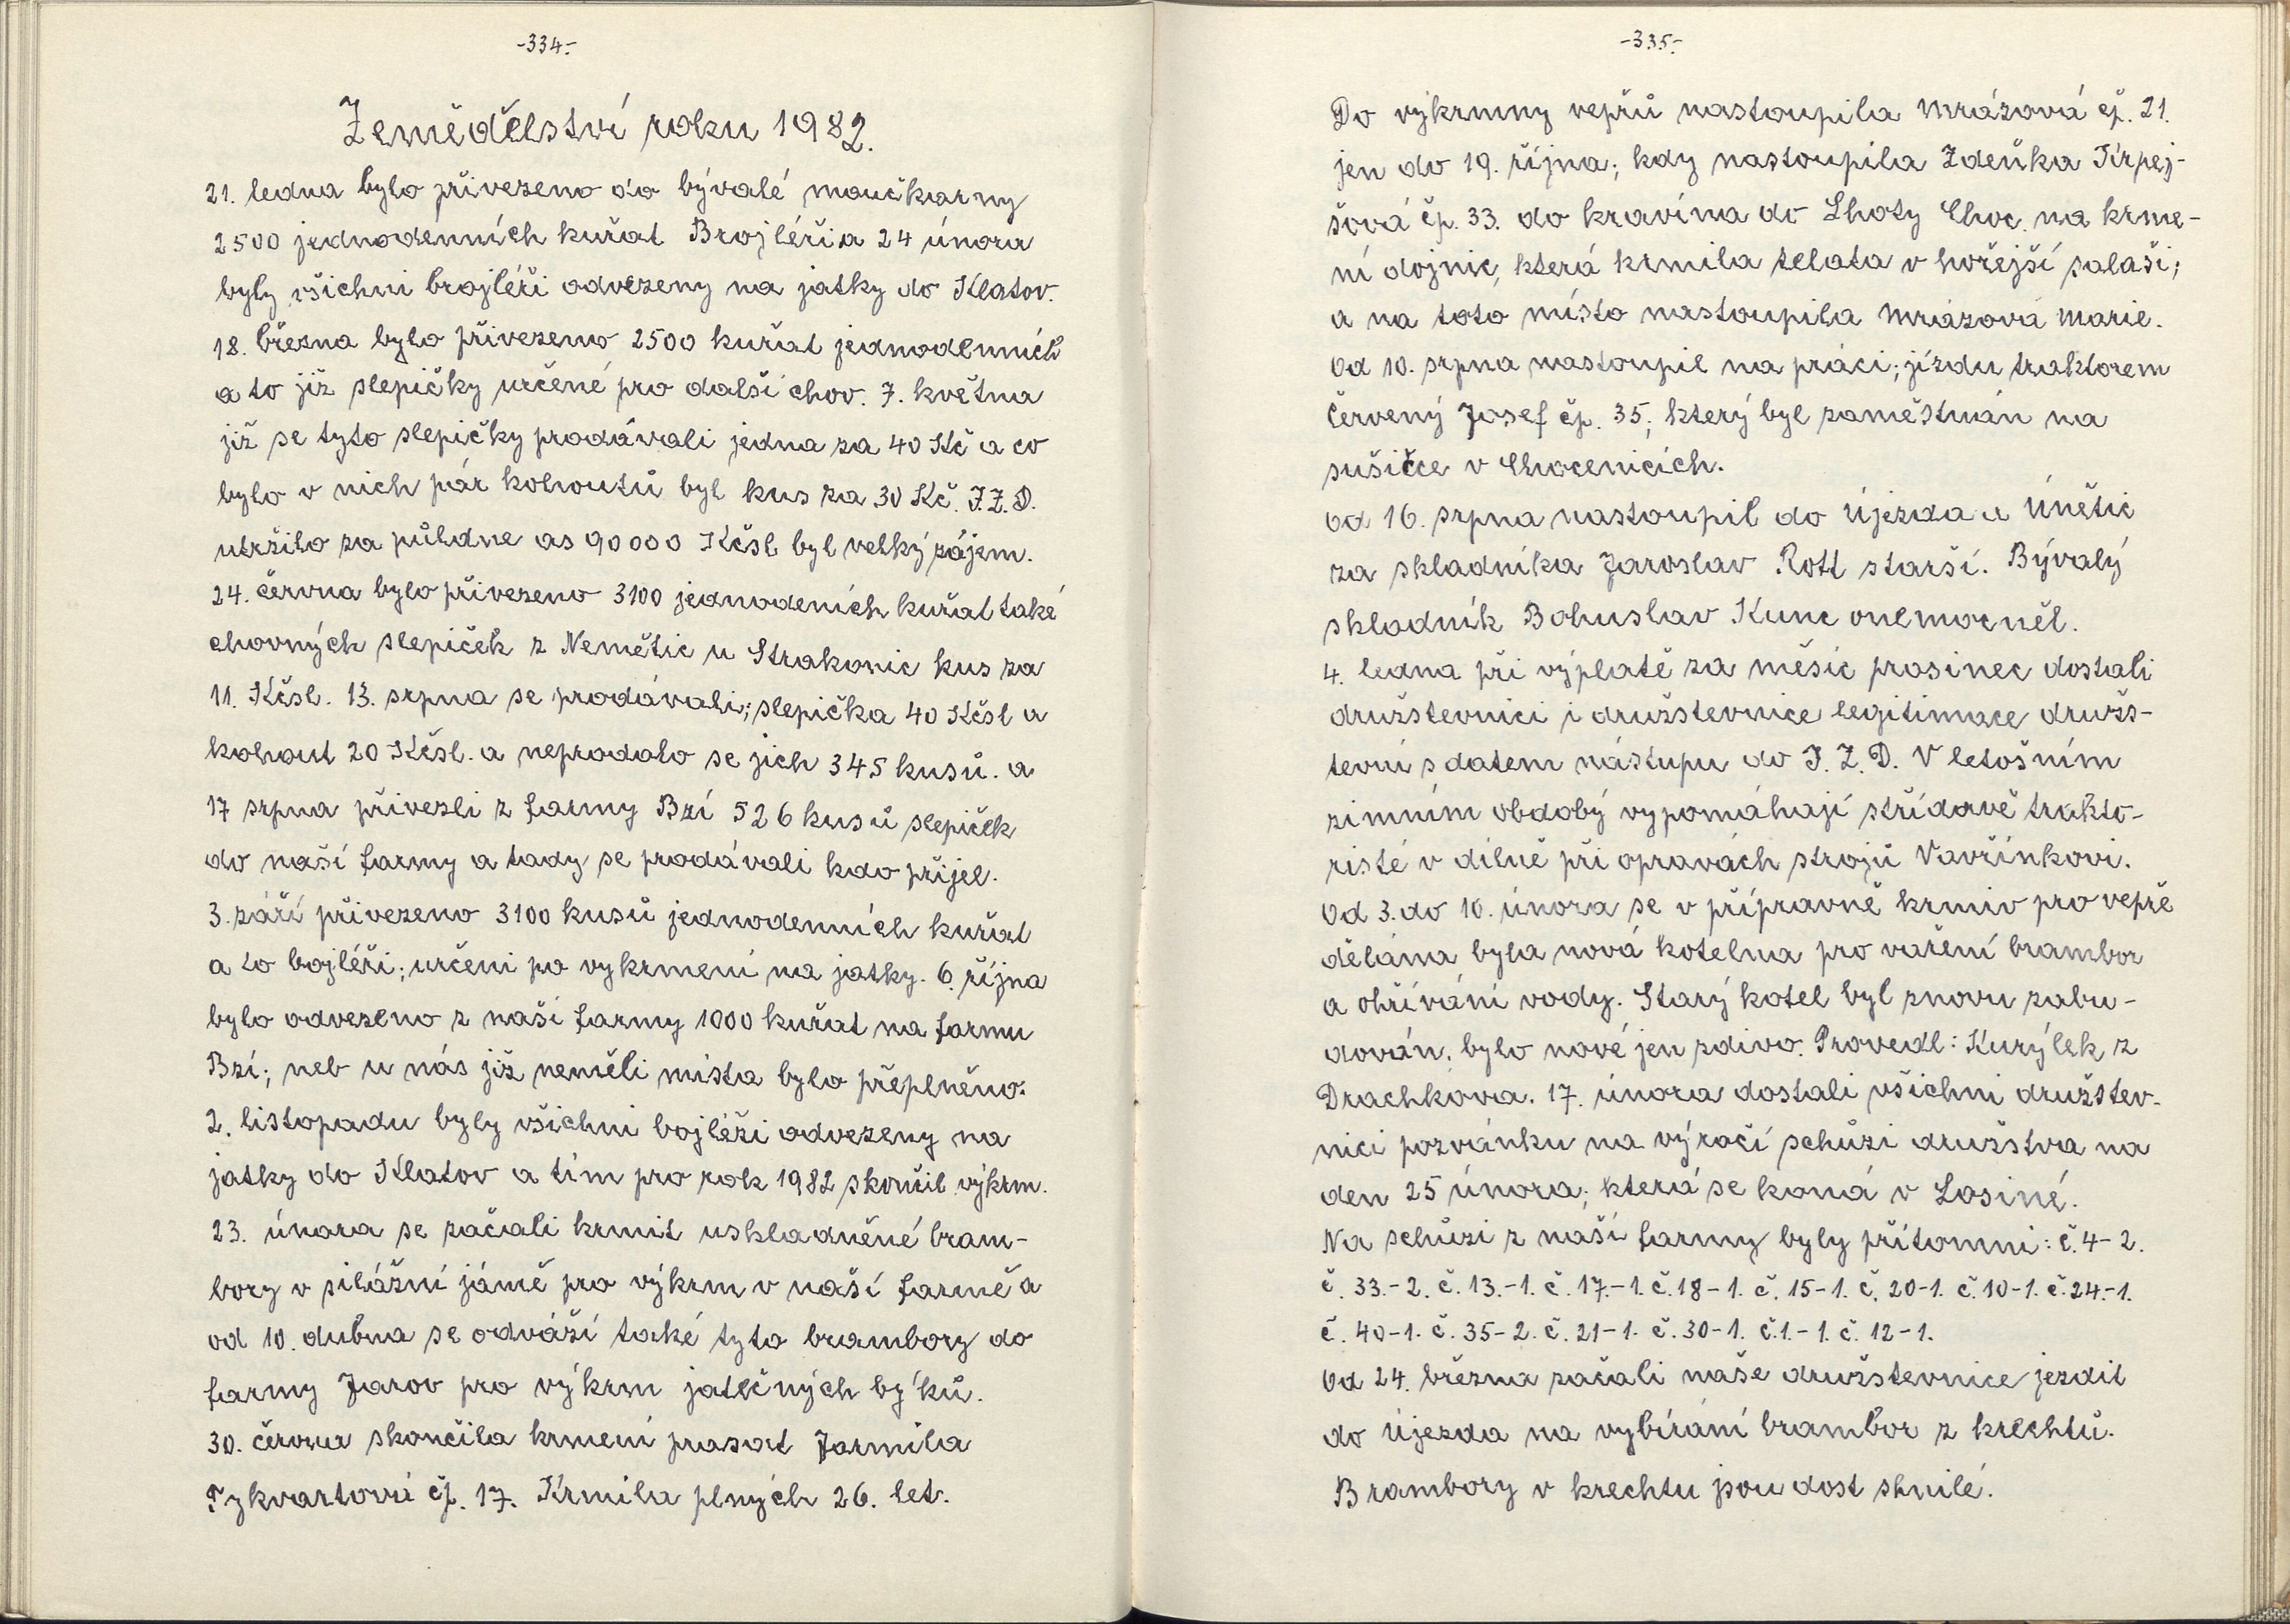 -334-
Zemědělství roku 1982.
21. ledna bylo přivezeno do bývalé moučkarny
2500 jednodenních kuřat Brojléři a 24 února
byly všichni brojléři odvezeny na jatky do Klatov.
18. března bylo přivezeno 2500 kuřat jednodenních
a to již slepičky určené pro další chov. 7. května
již se tyto slepičky prodávali jedna za 40 Kč a co
bylo v nich pár kohoutů byl kus za 30 Kč. J.Z.D.
utržilo za půldne as 90000 Kčsl byl velký zájem.
24. června bylo přivezeno 3100 jednodeních kuřat také
chovných slepiček z Nemětic u Strakonic kus za
11. Kčsl. 13. srpna se prodávali; slepička 40 Kčsl a
kohout 20 Kčsl. a neprodalo se jich 345 kusů. a
17 srpna přivezli z farmy Bzí 526 kusů slepiček
do naší farmy a tady se prodávali kdo přijel.
3. září přivezeno 3100 kusů jednodenních kuřat
a to bojléři; určeni po vykrmení na jatky. 6. října
bylo odvezeno z naší farmy 1000 kuřat na farmu
Bzí; neb u nás již neměli místa bylo přeplněno.
2. listopadu byly všichni bojléři odvezeny na
jatky do Klatov a tím pro rok 1982 skončil výkrm.
23. února se začali krmit uskladněné bram-
bory v silážní jámě pro výkrm v naší farmě a
od 10. dubna se odváží také tyto brambory do
farmy Jarov pro výkrm jatečných býků.
30. června skončila krmení prasat Jarmila
Tykvartová čp. 17. Krmila plných 26. let.
-335-
Do výkrmny vepřů nastoupila Mrázová čp. 21.
jen do 19. října; kdy nastoupila Zdeňka Kirpej-
šová čp. 33. do kravína do Lhoty Choc. na krme-
ní dojnic, která krmila telata v hořejší salaši;
a na toto místo nastoupila Mrázová Marie.
Od 10. srpna nastoupil na práci; jízdu traktorem
Červený Josef čp. 35; který byl zaměstnán na
sušičce v Chocenicích.
Od 16. srpna nastoupil do Újezda u Únětic
za skladníka Jaroslav Rott starší. Bývalý
skladník Bohuslav Kunc onemocněl.
4. ledna při výplatě za měsíc prosinec dostali
družstevnici i družstevnice legitimace družs-
tevní s datem nástupu do J.Z.D. V letošním
zimním obdobý vypomáhají střídavě trakto-
risté v dílně při opravách strojů Vavřínkovi.
Od 3. do 10. února se v přípravně krmiv pro vepře
dělána byla nová kotelna pro vaření brambor
a ohřívání vody. Starý kotel byl znovu zabu-
dován, bylo nové jen zdivo. Provedl: Kurýlek z
Drachkova. 17. února dostali všichni družstev-
nici pozvánku na výročí schůzi družstva na
den 25 února; která se koná v Losiné.
Na schůzi z naší farmy byly přítomni: č. 4-2.
č. 33.-2. č. 13.-1. č. 17.-1. č. 18-1. č. 15-1. č. 20-1. č. 10-1. č. 24.-1.
č. 40-1. č. 35-2. č. 21-1. č. 30-1. č. 1.-1. č. 12-1.
Od 24. března začali naše družstevnice jezdit
do Újezda na vybírání brambor z krechtů.
Brambory v krechtu jsou dost shnilé.